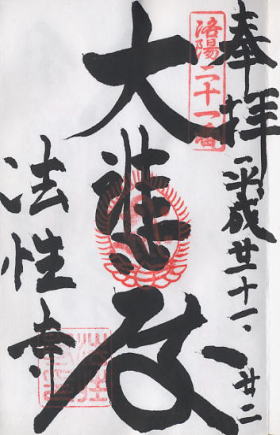 奉拝
平成廿一 十一、廿二
洛陽二十一番
大悲殿
法性寺